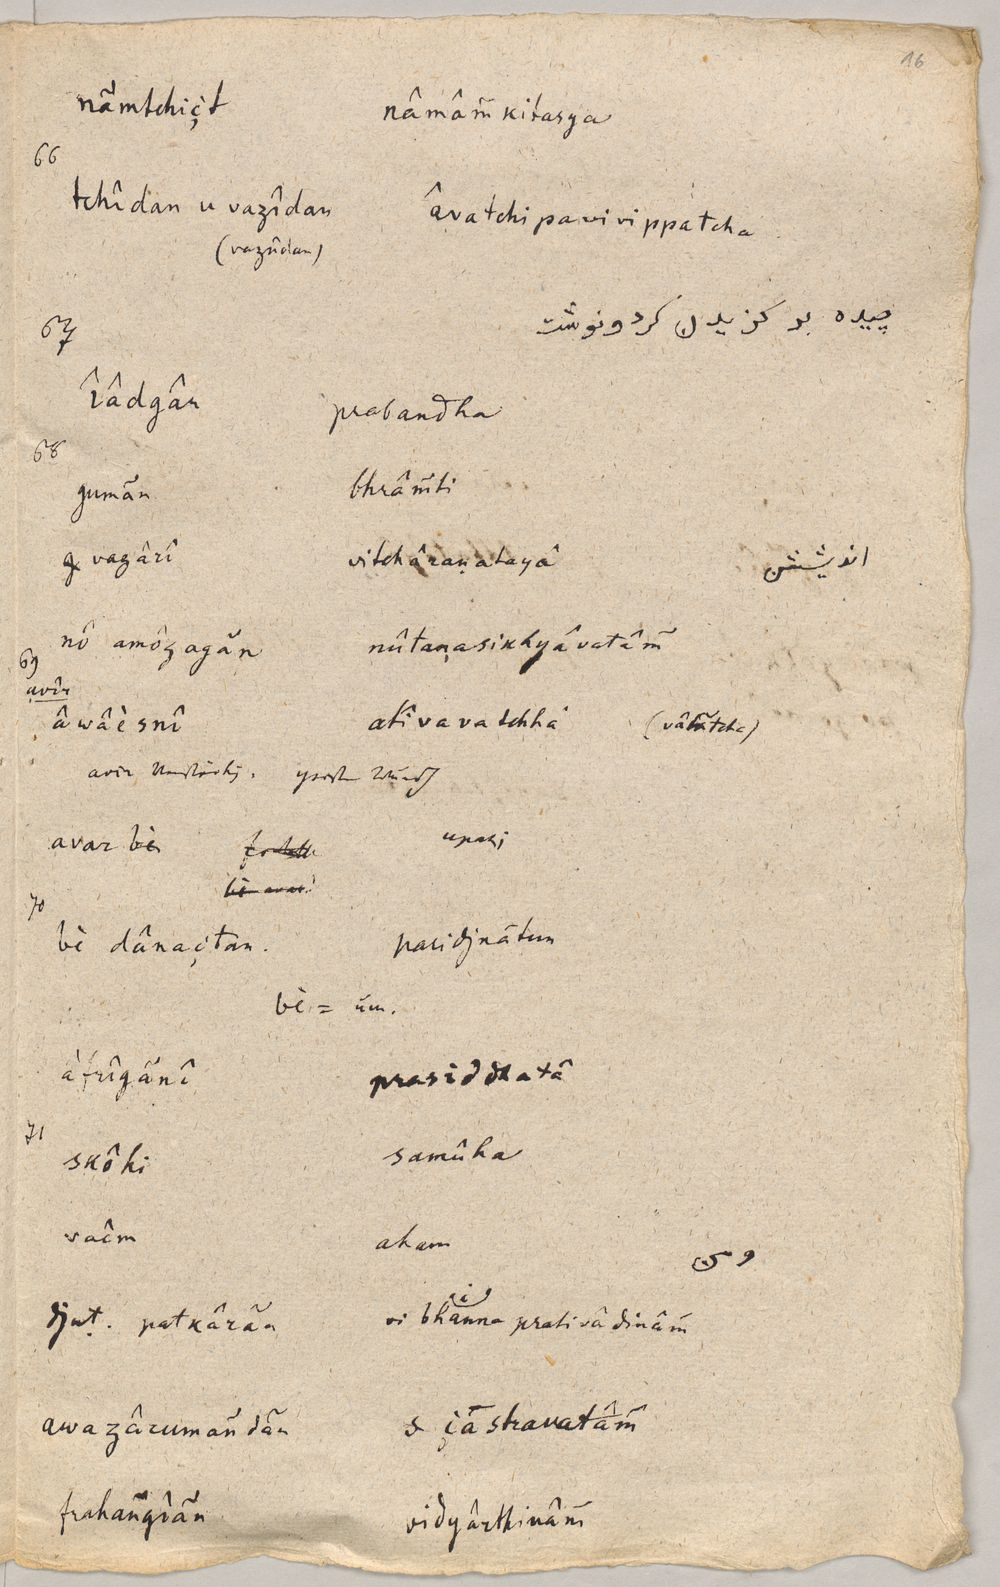 16
nãmtchiçt nâmâm̃kitasya
66
tchîdan u vazîdan âvatchipavivippatcha
(vazîdan)
67 چیده بر کزیدن کرد و نوشت
îâdgâr prabandha
68
gumãn bhrâm̃ti
vazârî vitchâraṇatayâ اندیشش
nô amôzagãn nûtaṇasikhyâvatâm̃
69
avîr
âwâèsnî atîvavatchhâ
avîr
avar bè upari
70
bè dânaçtan. paridjnâtum
bè = ũm.
âfrîgãnî prasiddhatâ
71
skôhi samûha
vaêm aham
djuṭ. patkârãn vibhanna prativâdinâm̃
i
awazârumañdãn s çâstravatâm̃
frahañgîãn vidyârthinâm̃